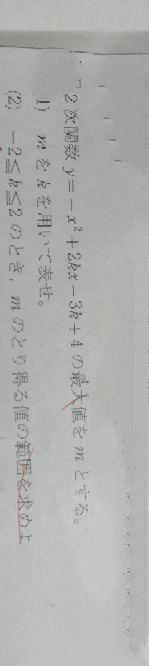 2次関数 y = −x² + 2kx − 3k + 4 の最大値を m とする。
1) m を k を用いて表せ。
(2) −2 ≦ k ≦ 2 のとき, m のとり得る値の範囲を求めよ